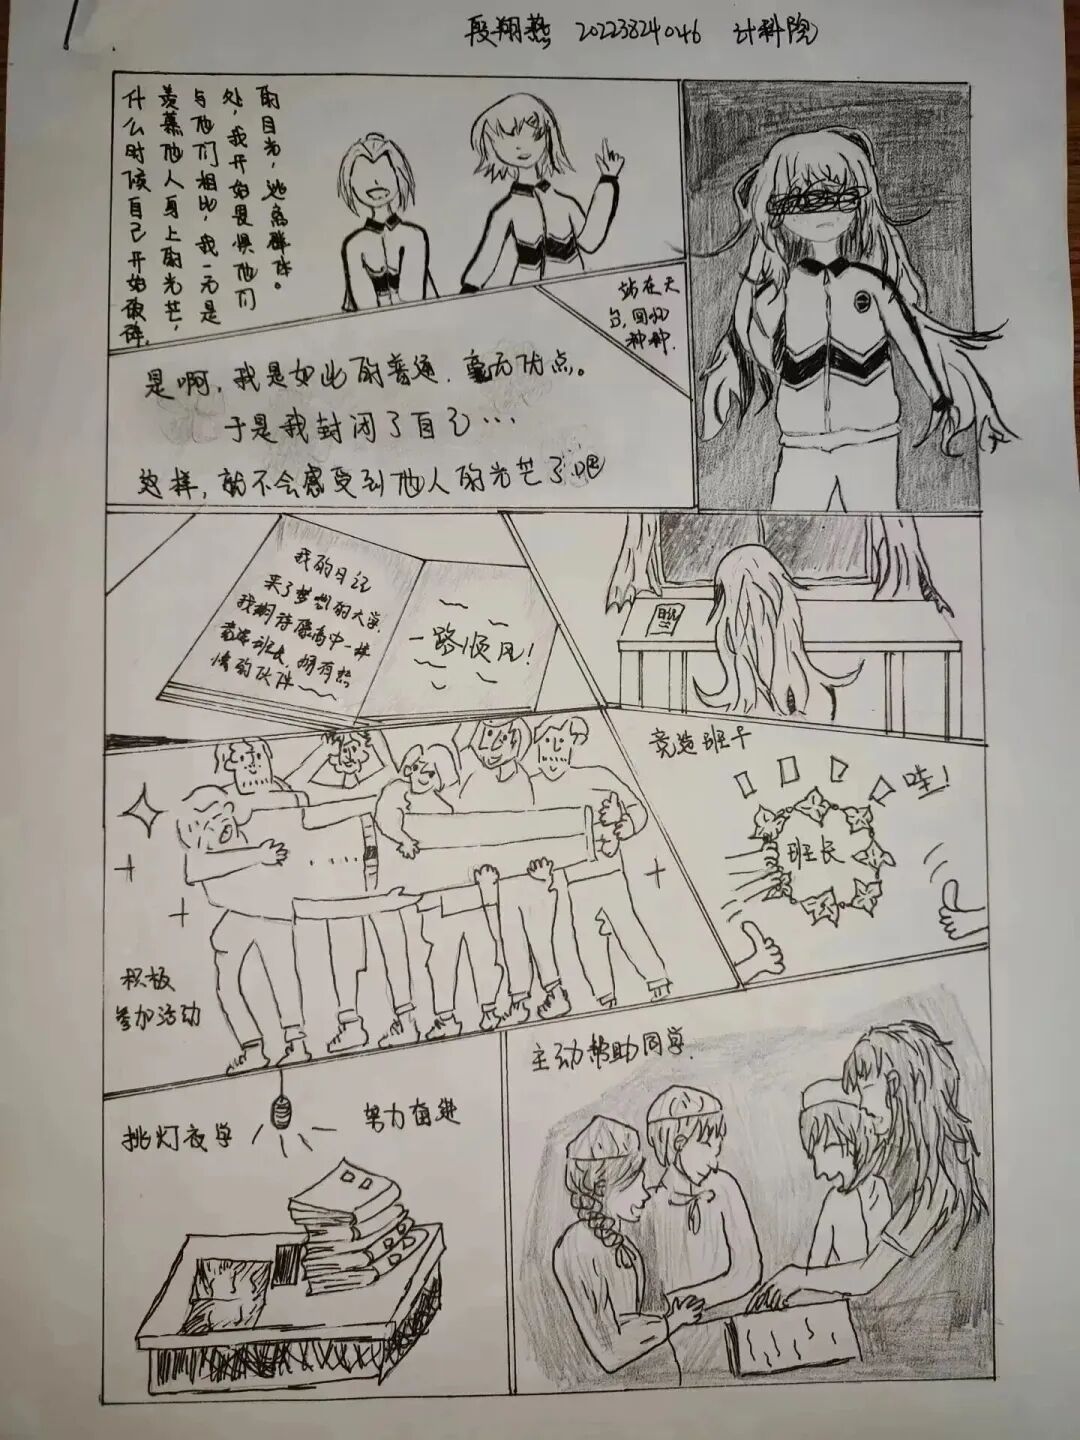 段翔燕 20223824046 计科院
什么时候自己开始破碎,
羡慕他人身上的光芒,
与他们相比,我一无是
处,我开始畏惧他们
的目光,逃离群体。
站在天
台,回忆
种种.
是啊,我是如此的普通,毫无优点。
于是我封闭了自己…
这样,就不会感受到他人的光芒了吧
我的日记
来了梦想的大学,
我期待像高中一样
当班长,拥有热
情的伙伴
一路顺风!
竞选班干
哇!
班长
积极
参加活动
主动帮助同学.
挑灯夜学
努力奋进